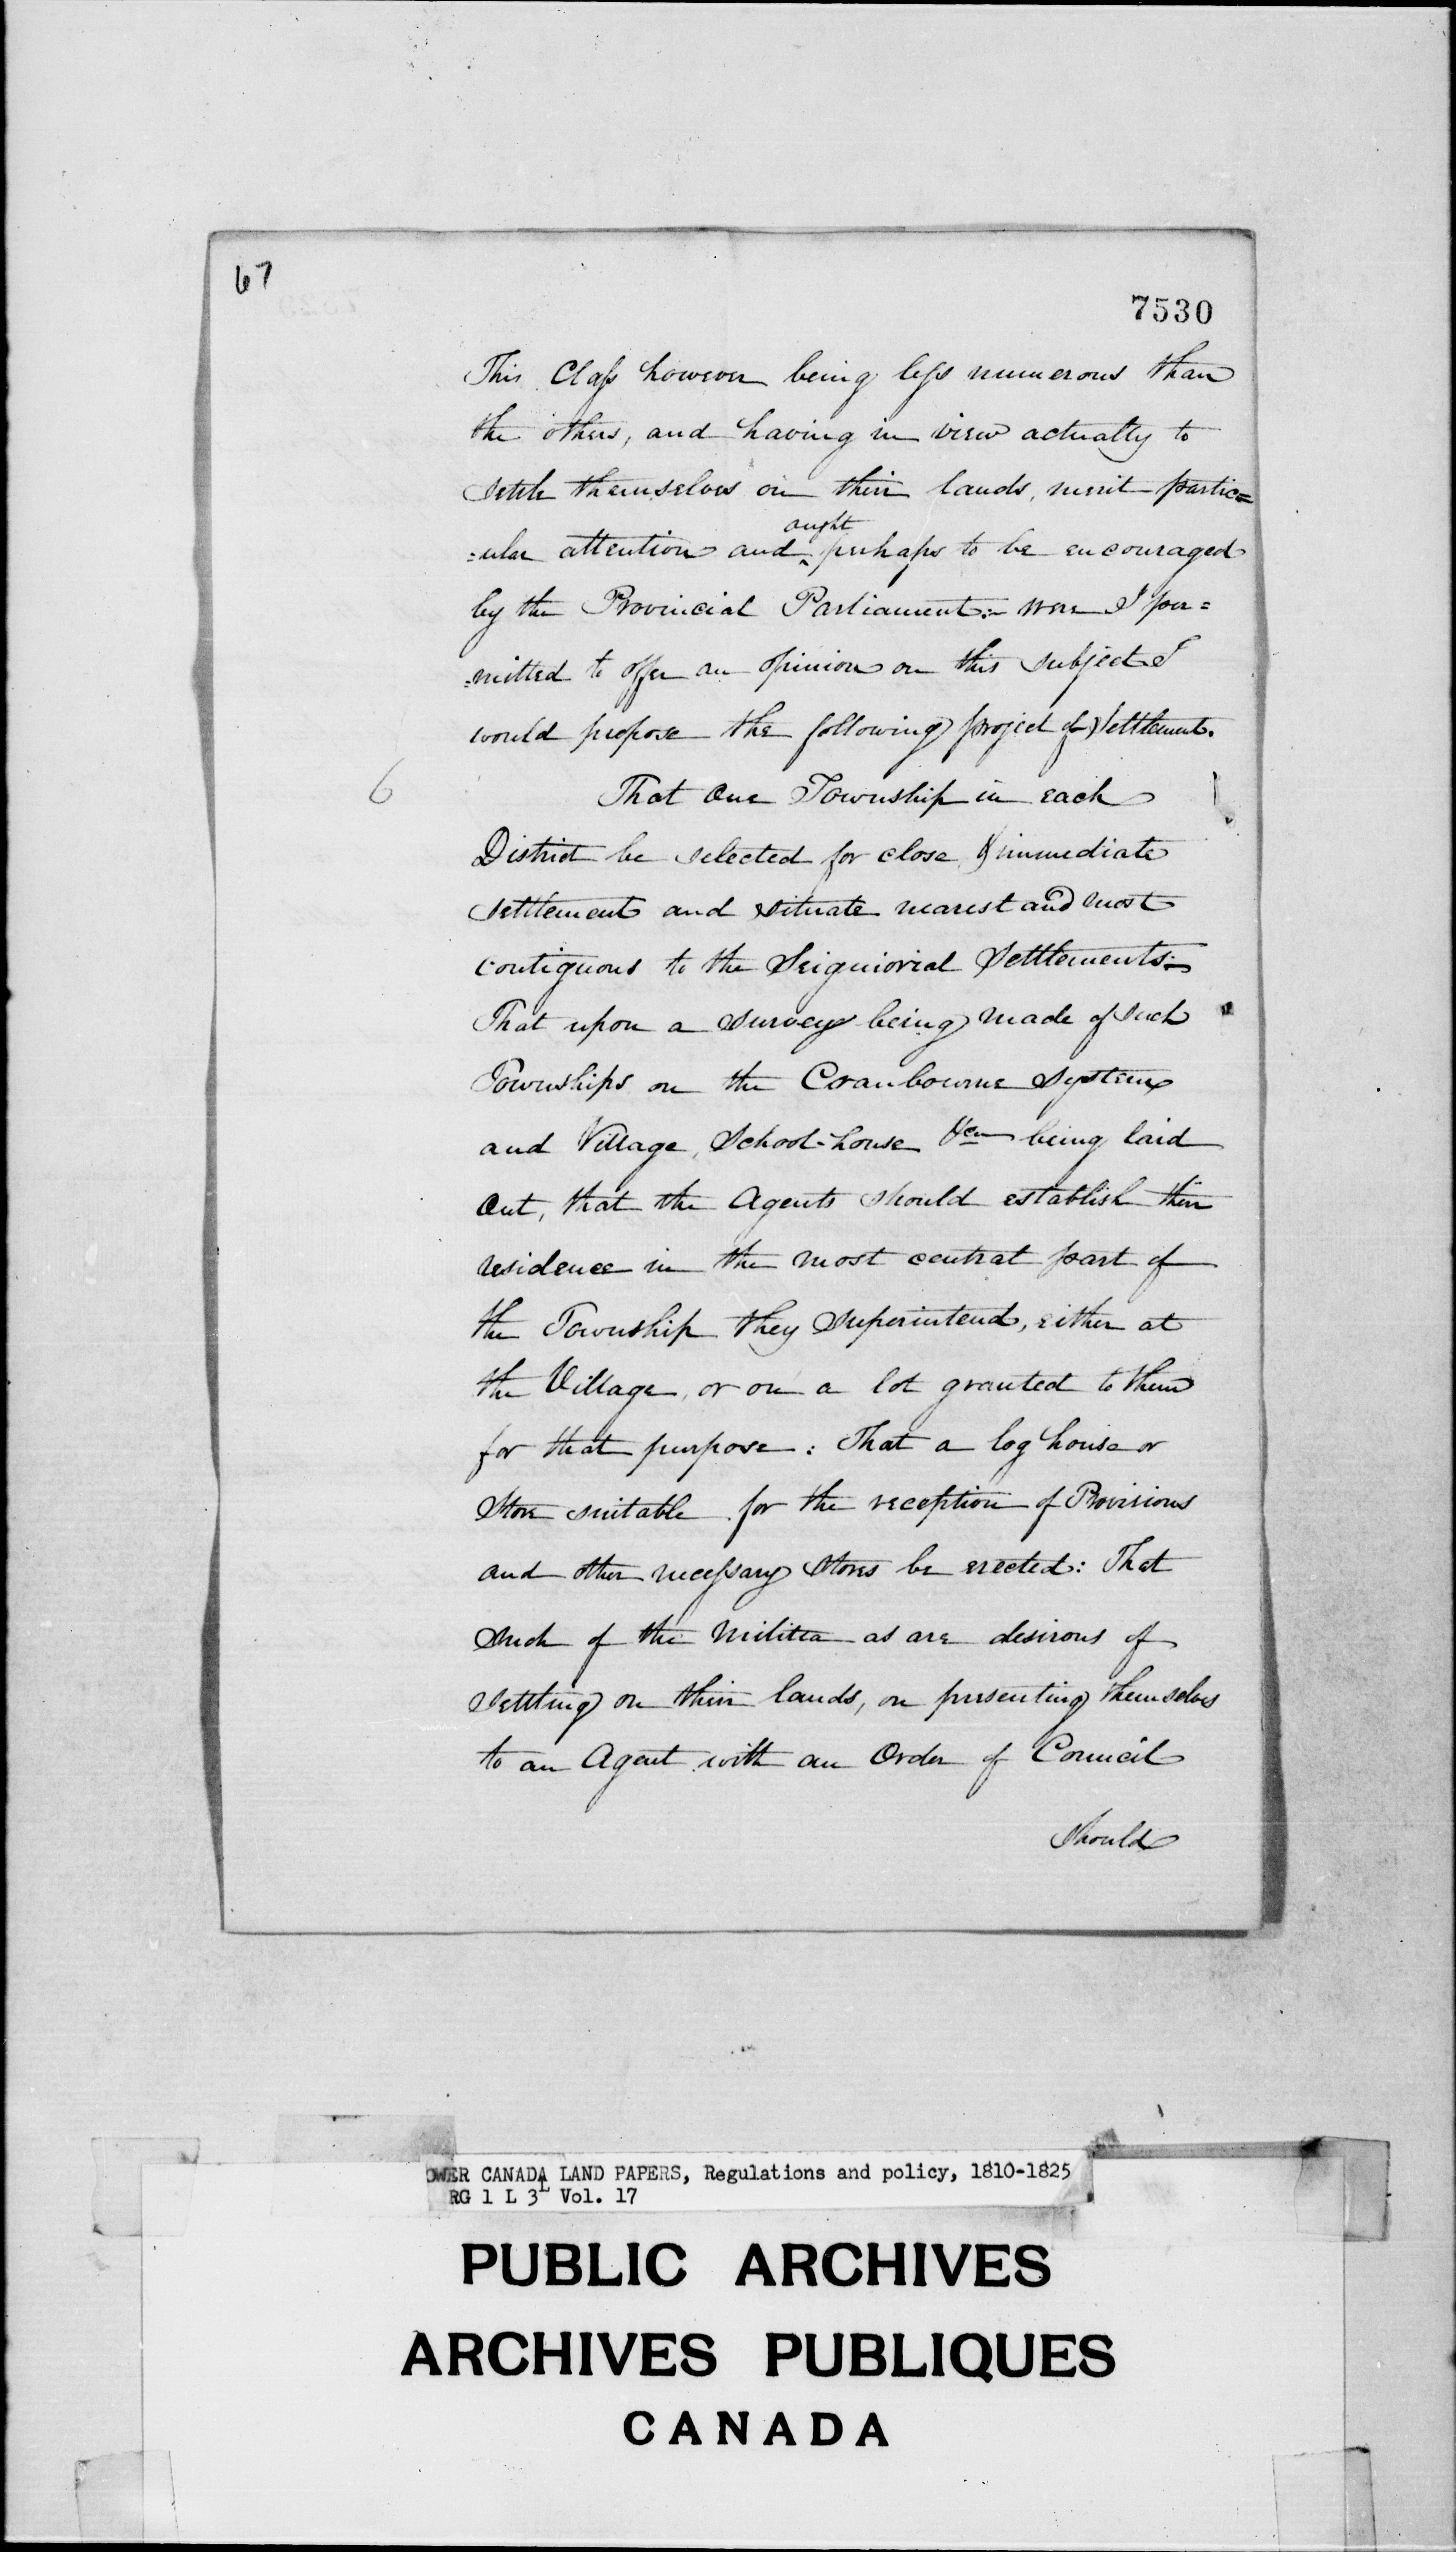 67
7530
This Class however being less numerous than
the others, and having in view actually to
settle themselves on their lands, merit partic=
ought
=ular attention and perhaps to be encouraged
by the Provincial Parliament:- were I per=
=mitted to offer an opinion on this subject I
would propose the following project of Settlement.
6
That One Township in each
District be selected for close & immediate
settlement and situate nearest and most
contiguous to the Seigniorial Settlements:-
That upon a survey being made of such
Townships on the Cranbourne System
and Village, School-house &ca being laid
out, that the Agents should establish their
residence in the most central part of
the Township they superintend, either at
the Village, or on a lot granted to them
for that purpose: That a log house or
Store suitable for the reception of Provisions
and other necessary stores be erected: That
such of the Militia as are desirous of
settling on their lands, on presenting themselves
to an Agent with an Order of Council
should
OWER CANADA LAND PAPERS, Regulations and policy, 1810-1825
RG 1 L 3L Vol. 17
PUBLIC ARCHIVES
ARCHIVES PUBLIQUES
CANADA